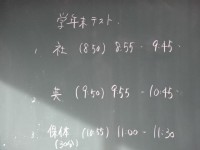 学年末テスト.
1. 社 (8:50) 8:55 - 9:45
2. 英 (9:50) 9:55 - 10:45
3 保体 (10:55) 11:00 - 11:30